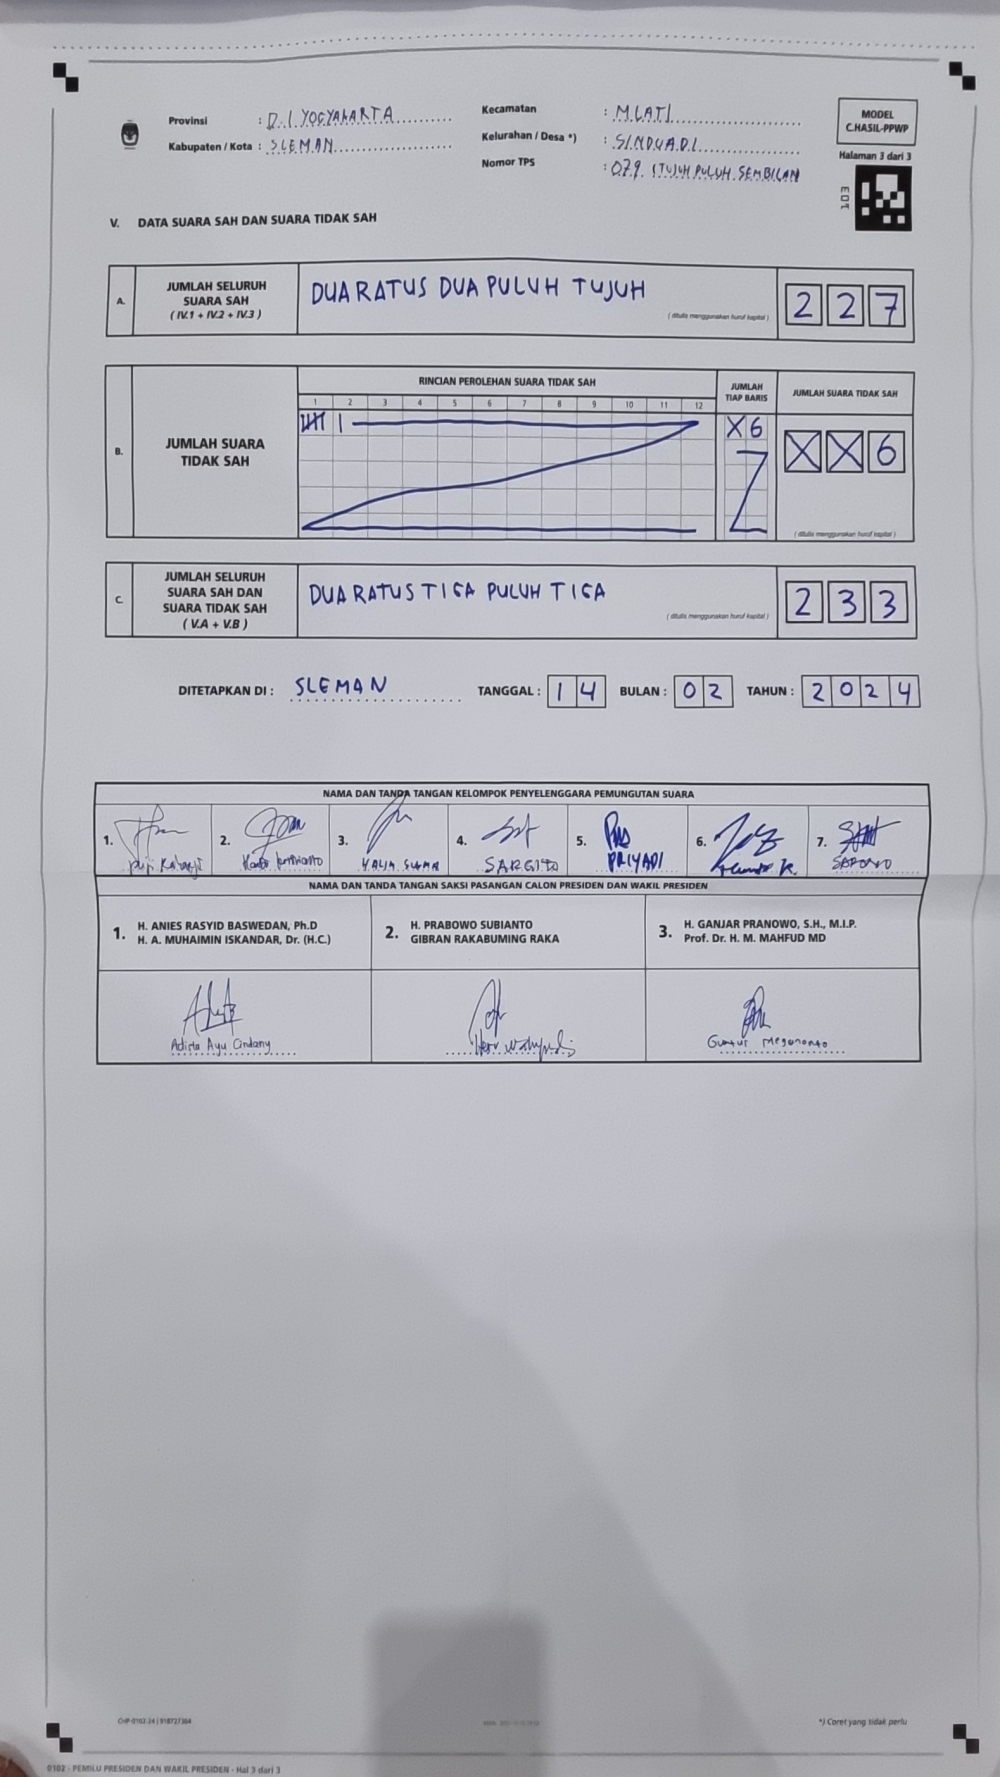 Provinsi : D.I. YOGYAKARTA
Kabupaten / Kota : SLEMAN
Kecamatan : MLATI
Kelurahan / Desa *) : SINDUADI
Nomor TPS : 079. (TUJUH PULUH SEMBILAN
MODEL
C.HASIL-PPWP
Halaman 3 dari 3
V. DATA SUARA SAH DAN SUARA TIDAK SAH
A. JUMLAH SELURUH
SUARA SAH
( IV.1 + IV.2 + IV.3 )
DUA RATUS DUA PULUH TUJUH
( ditulis menggunakan huruf kapital )
2 2 7
B. JUMLAH SUARA
TIDAK SAH
RINCIAN PEROLEHAN SUARA TIDAK SAH
1 2 3 4 5 6 7 8 9 10 11 12
JUMLAH
TIAP BARIS
X 6
JUMLAH SUARA TIDAK SAH
X X 6
( ditulis menggunakan huruf kapital )
C. JUMLAH SELURUH
SUARA SAH DAN
SUARA TIDAK SAH
( V.A + V.B )
DUA RATUS TIGA PULUH TIGA
( ditulis menggunakan huruf kapital )
2 3 3
DITETAPKAN DI : SLEMAN TANGGAL : 14 BULAN : 02 TAHUN : 2024
NAMA DAN TANDA TANGAN KELOMPOK PENYELENGGARA PEMUNGUTAN SUARA
1. 2. 3. 4. 5. 6. 7.
SARGITO PRIYADI
NAMA DAN TANDA TANGAN SAKSI PASANGAN CALON PRESIDEN DAN WAKIL PRESIDEN
1. H. ANIES RASYID BASWEDAN, Ph.D
H. A. MUHAIMIN ISKANDAR, Dr. (H.C.)
2. H. PRABOWO SUBIANTO
GIBRAN RAKABUMING RAKA
3. H. GANJAR PRANOWO, S.H., M.I.P.
Prof. Dr. H. M. MAHFUD MD
Ayu Cindany
Guntur
*) Coret yang tidak perlu
0102 - PEMILU PRESIDEN DAN WAKIL PRESIDEN - Hal 3 dari 3